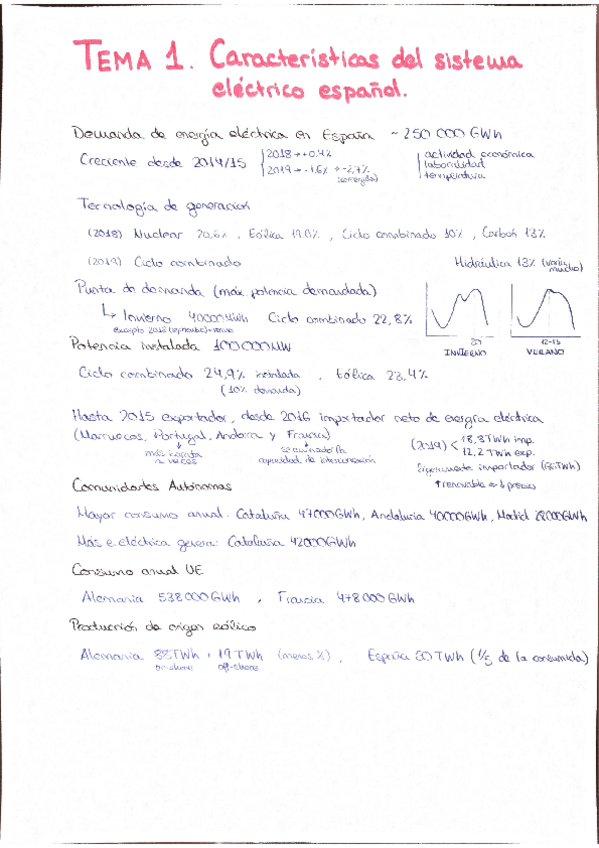 TEMA 1. Características del sistema
eléctrico español.
Demanda de energía eléctrica en España ~ 250 000 GWh
Creciente desde 2014/15
2018 → +0.4%
2019 → -1.6% → -2,7%
(corregida)
actividad económica
laboralidad
temperatura
Tecnología de generación
(2018) Nuclear 20,6%, Eólica 19.0%, Ciclo combinado 10%, Carbón 13%
(2019) Ciclo combinado
Hidráulica 13% (varía mucho)
Punta de demanda (máx. potencia demandada)
↳ Invierno 40000 Ciclo combinado 22,8%
INVIERNO
VERANO
Potencia instalada 100000MW
Ciclo combinado 24,9% instalada, Eólica 23,4%
(10% demanda)
Hasta 2015 exportador, desde 2016 importador neto de energía eléctrica
(Marruecos, Portugal, Andorra y Francia)
más barata
a veces
capacidad de interconexión
(2019) < 18,8TWh imp.
12,2TWh exp.
importador
↑ renovable ↓ precio
Comunidades Autónomas
Mayor consumo anual: Cataluña 47000GWh, Andalucía 40000GWh, Madrid 28000GWh
Más e. eléctrica genera: Cataluña 42000GWh
Consumo anual UE
Alemania 538000GWh, Francia 478000GWh
Producción de origen eólico
Alemania 88TWh + 19TWh (menos %), España 50TWh (1/5 de la consumida)
on-shore off-shore